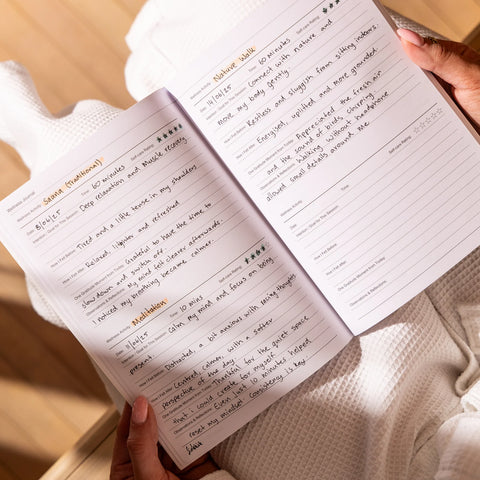 Remedy Journal
Self-care Rating: ★★★★
Wellness Activity: Sauna (traditional)
Date: 8/04/25 Time: 60 minutes
Intention - Goal for This Session: Deep relaxation and Muscle recovery
How I Felt Before: Tired and a little tense in my shoulders
How I Felt After: Relaxed, lighter, and refreshed
One Gratitude Moment from Today: Grateful to have the time to
slow down and switch off.
Observations & Reflections: My mind felt clearer afterwards.
I noticed my breathing became calmer.
Self-care Rating: ★★★★
Wellness Activity: Meditation
Date: 11/04/25 Time: 10 mins
Intention - Goal for This Session: Calm my mind and focus on being
present.
How I Felt Before: Distracted, a bit anxious with racing thoughts
How I Felt After: Centred, calmer, with a softer
perspective of the day
One Gratitude Moment from Today: Thankful for the quiet space
that I could create for myself.
Observations & Reflections: Even just 10 minutes helped
reset my mindset. Consistency is key
Self-care Rating: ★★★
Wellness Activity: Nature Walk
Date: 14/04/25 Time: 60 minutes
Intention - Goal for This Session: Connect with nature and
move my body gently.
How I Felt Before: Restless and sluggish from sitting indoors.
How I Felt After: Energised, uplifted and more grounded.
One Gratitude Moment from Today: Appreciated the fresh air
and the sound of birds chirping.
Observations & Reflections: Walking without headphones
allowed small details around me
Self-care Rating: ☆☆☆☆☆
Wellness Activity:
Date: Time:
Intention - Goal for This Session:
How I Felt Before:
How I Felt After:
One Gratitude Moment from Today:
Observations & Reflections: